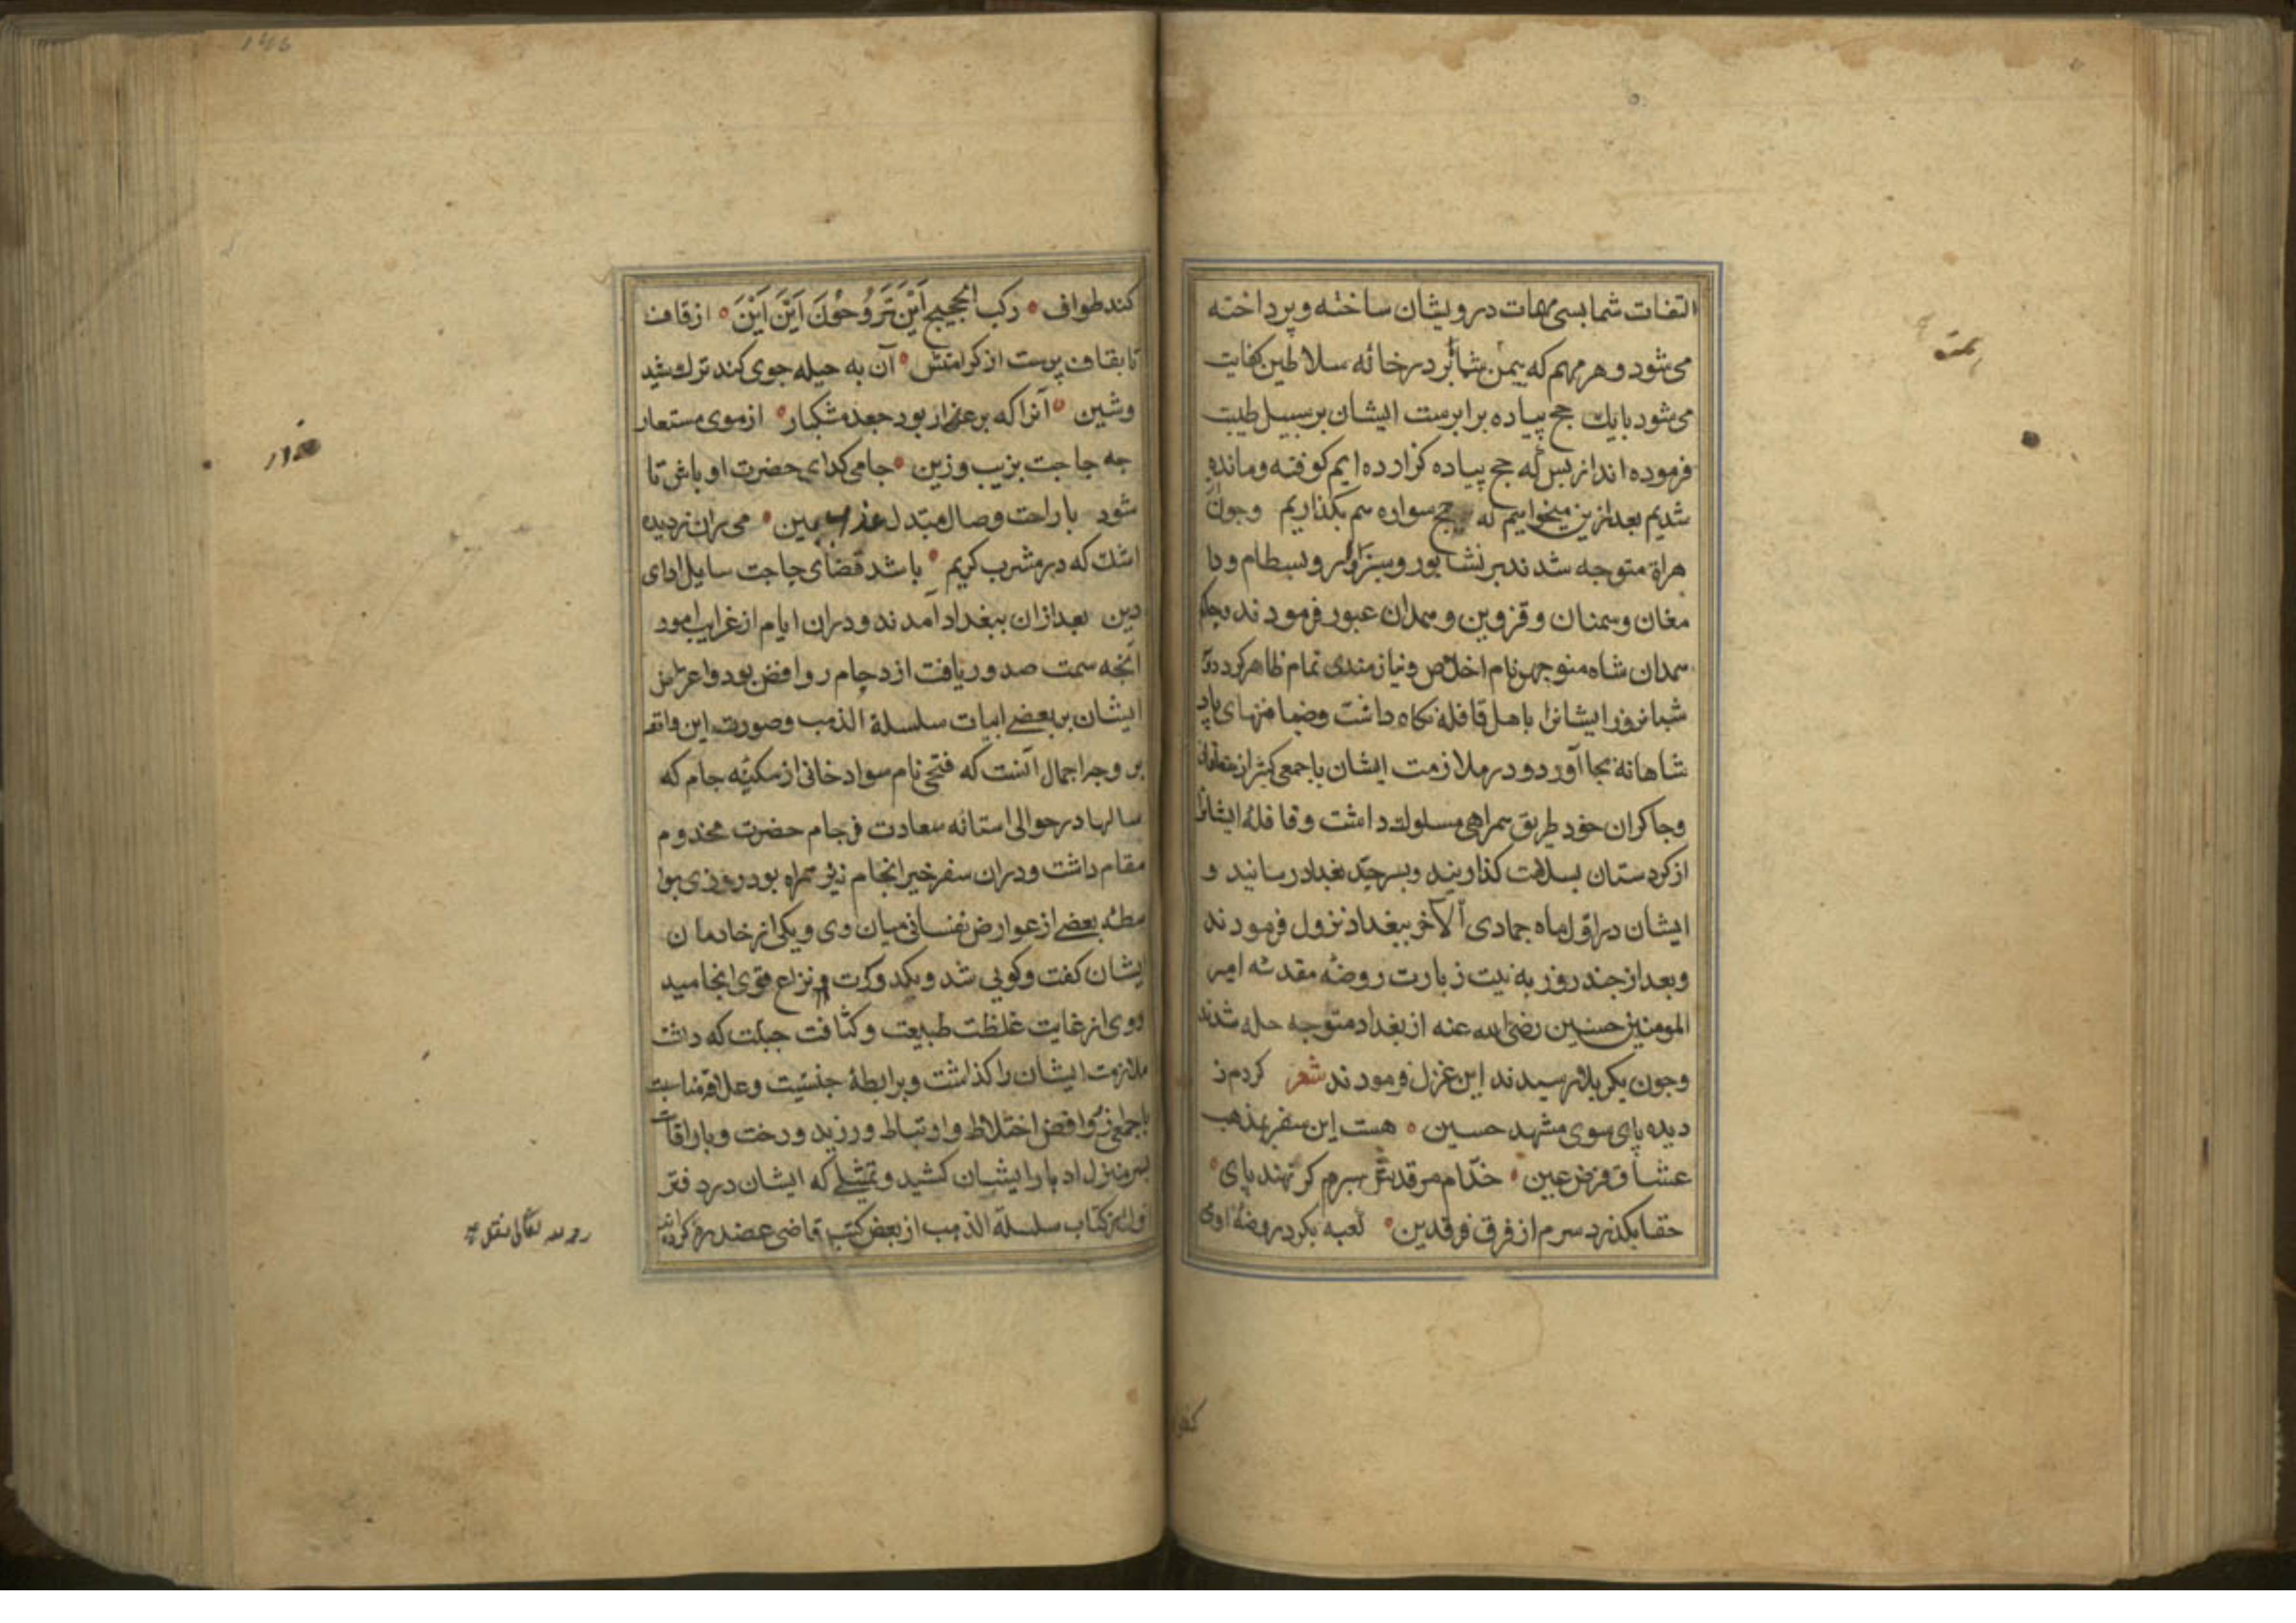 التفات شما بسی مهمات درویشان ساخته و پرداخته
می‌شود و هر مهم که بیمن شما بر در خانه سلاطین کفایت
می‌شود با یك حج پیاده برابرست ایشان بر سبیل طیبت
فرموده‌اند از بس که حج پیاده کزارده‌ایم کوفته و مانده
شدیم بعد ازین میخواهیم که حج سواره هم بکذاریم وچون
هراة متوجه شدند بر نشابور و سبزوار و بسطام و دا
مغان و سمنان و قزوین و همدان عبور فرمودند بحکم
همدان شاه منوچهر نام اخلاص و نیازمندی تمام ظاهر کرد
شبانروز ایشانرا با هل قافله نکاه داشت وضیافتهای پاد
شاهانه بجا آورد و در ملازمت ایشان با جمعی کثیر از
وچاکران خود طریق همراهی مسلوك داشت و قافله ایشانرا
از کردستان بسلامت کذارنید و بسرحد بغداد رسانید و
ایشان در اول ماه جمادی الآخر ببغداد نزول فرمودند
و بعد از چند روز به نیت زیارت روضه مقدسه امیر
المومنین حسین رضی الله عنه از بغداد متوجه حله شدند
وچون بکربلا رسیدند این غزل فرمودند شعر کردم ز
دیده پای سوی مشهد حسین ٥ هست این سفر بمذهب
عشاق فرض عین ٥ خدام مرقدش بسرم کر نهند پای ٥
حقا بکذرد سرم از فرق فرقدین ٥ کعبه بکرد روضه او می
کند
کند طواف ٥ رکب الحجیج اَیْنَ تَرَوُحُوْنَ اَیْنَ اَیْنَ ٥ از قاف
تا بقاف پرست از کرامتش ٥ آن به حیله جوی کند ترك شید
وشین ٥ آنرا که بر عذار بود جعد مشکبار ٥ از موی مستعار
چه حاجت بزیب و زین ٥ جامی کدای حضرت او باش تا
شود با راحت وصال مبتدل بین ٥ می‌ران ز دیده
اشك که در مشرب کریم ٥ باشد قضای حاجت سایل ادای
دین بعد از ان ببغداد آمدند و دران ایام از غرایب امور
آنچه سمت صدور یافت ازدحام روافض بود و اعراض
ایشان بر بعضی ابیات سلسلة الذهب وصورت این واقعه
بر وجه اجمال آنست که فتحی نام سواد خانی از سکنه جام که
سالها در حوالی استانه سعادت فرجام حضرت مخدوم
مقام داشت و دران سفر خیر انجام نیز همراه بود روزی بوا
سطه بعضی از عوارض نفسانی میان وی و یکی از خادمان
ایشان کفت و کویی شد و بکدورت و نزاع قوی انجامید
و وی از غایت غلظت طبیعت و کثافت جبلت که داشت
ملازمت ایشان را کذاشت و برابطه جنسیت و علاقه مناسبت
با جمعی روافض اختلاط و ارتباط ورزید و رخت و بار اقامت
بسر منزل ادبار ایشان کشید و تمثیلی که ایشان در دفتر
اول از کتاب سلسلة الذهب از بعض کتب قاضی عضد
رحمه الله تعالی نقل